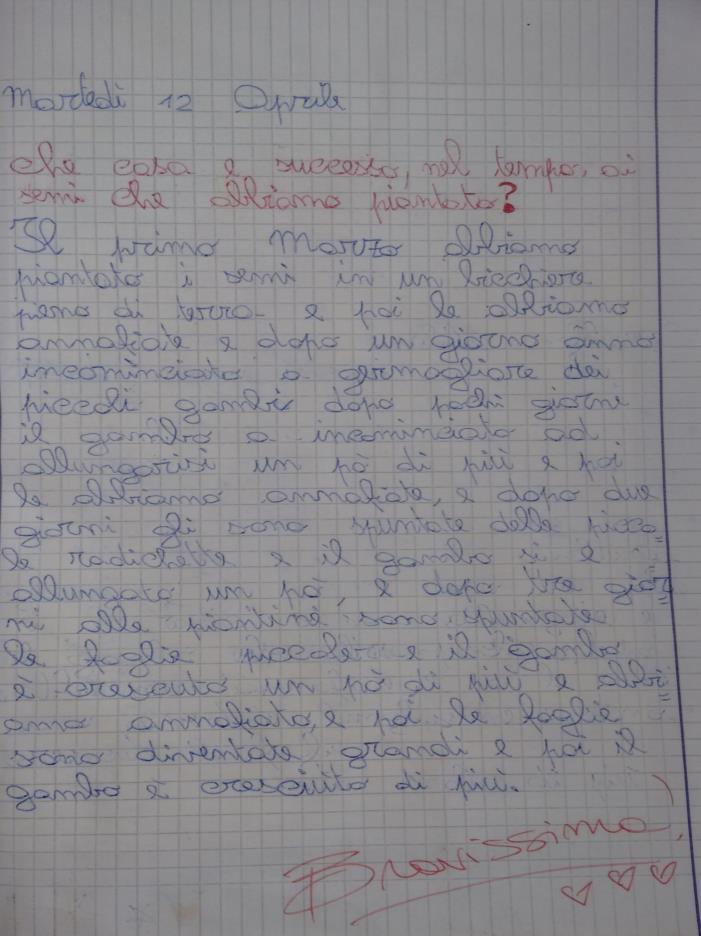 Martedì 12 Aprile
Che cosa è successo, nel tempo, ai
semi che abbiamo piantato?
Il primo Marzo abbiamo
piantato i semi in un bicchiere
pieno di terra e poi le abbiamo
annafiate e dopo un giorno anno
incominciato a germogliare dei
piccoli gambi dopo pochi giorni
il gambo a incominciato ad
allungarisi un pò di più e poi
le abbiamo annafiate, e dopo due
giorni gli sono spuntate delle picco
le radichette e il gambo si è
allungato un pò, e dopo tre gior
ni alle piantine sono spuntate
le foglie piccole e il gambo
è cresciuto un pò di più e abbi
amo annafiato, e poi le foglie
sono diventate grandi e poi il
gambo è cresciuto di più.
Bravissima